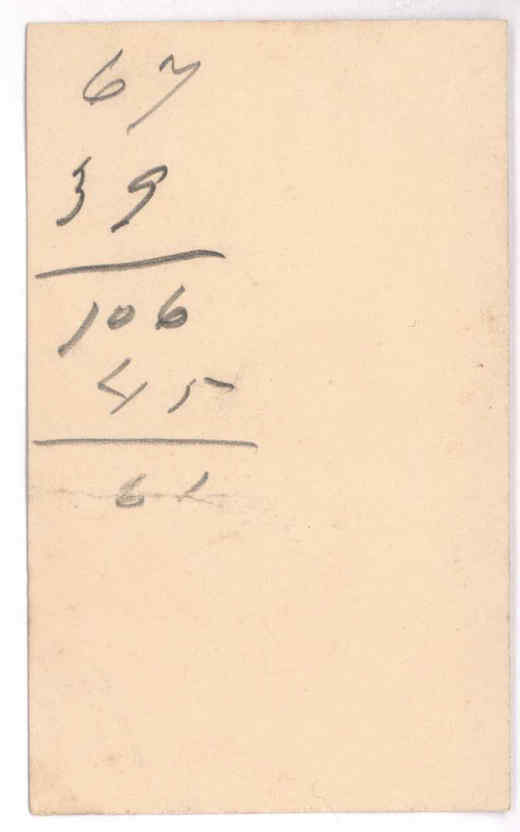 67
39
106
45
61